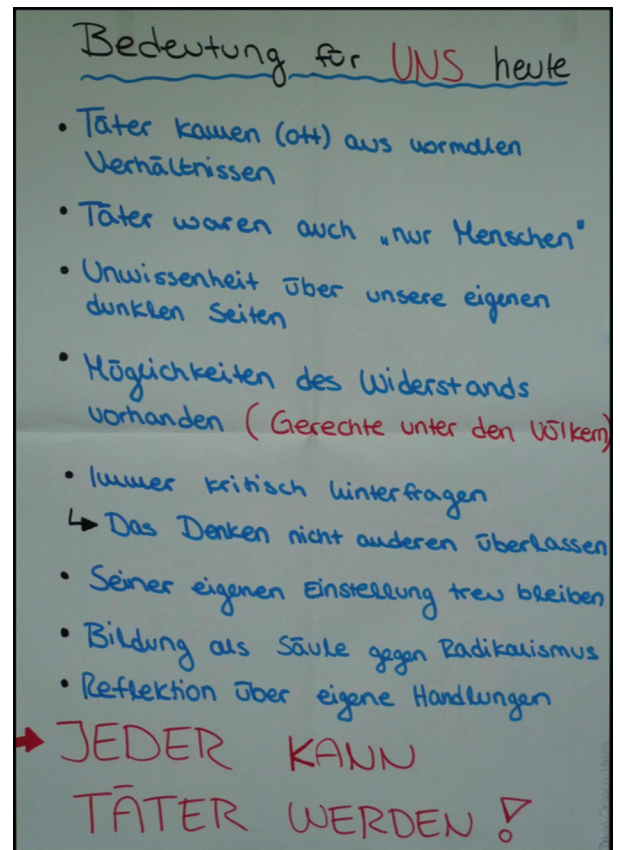 Bedeutung für UNS heute
• Täter kamen (oft) aus normalen
Verhältnissen
• Täter waren auch „nur Menschen"
• Unwissenheit über unsere eigenen
dunklen Seiten
• Möglichkeiten des Widerstands
vorhanden (Gerechte unter den Völkern)
• Immer kritisch hinterfragen
↳ Das Denken nicht anderen überlassen
• Seiner eigenen Einstellung treu bleiben
• Bildung als Säule gegen Radikalismus
• Reflektion über eigene Handlungen
→ JEDER KANN
TÄTER WERDEN !